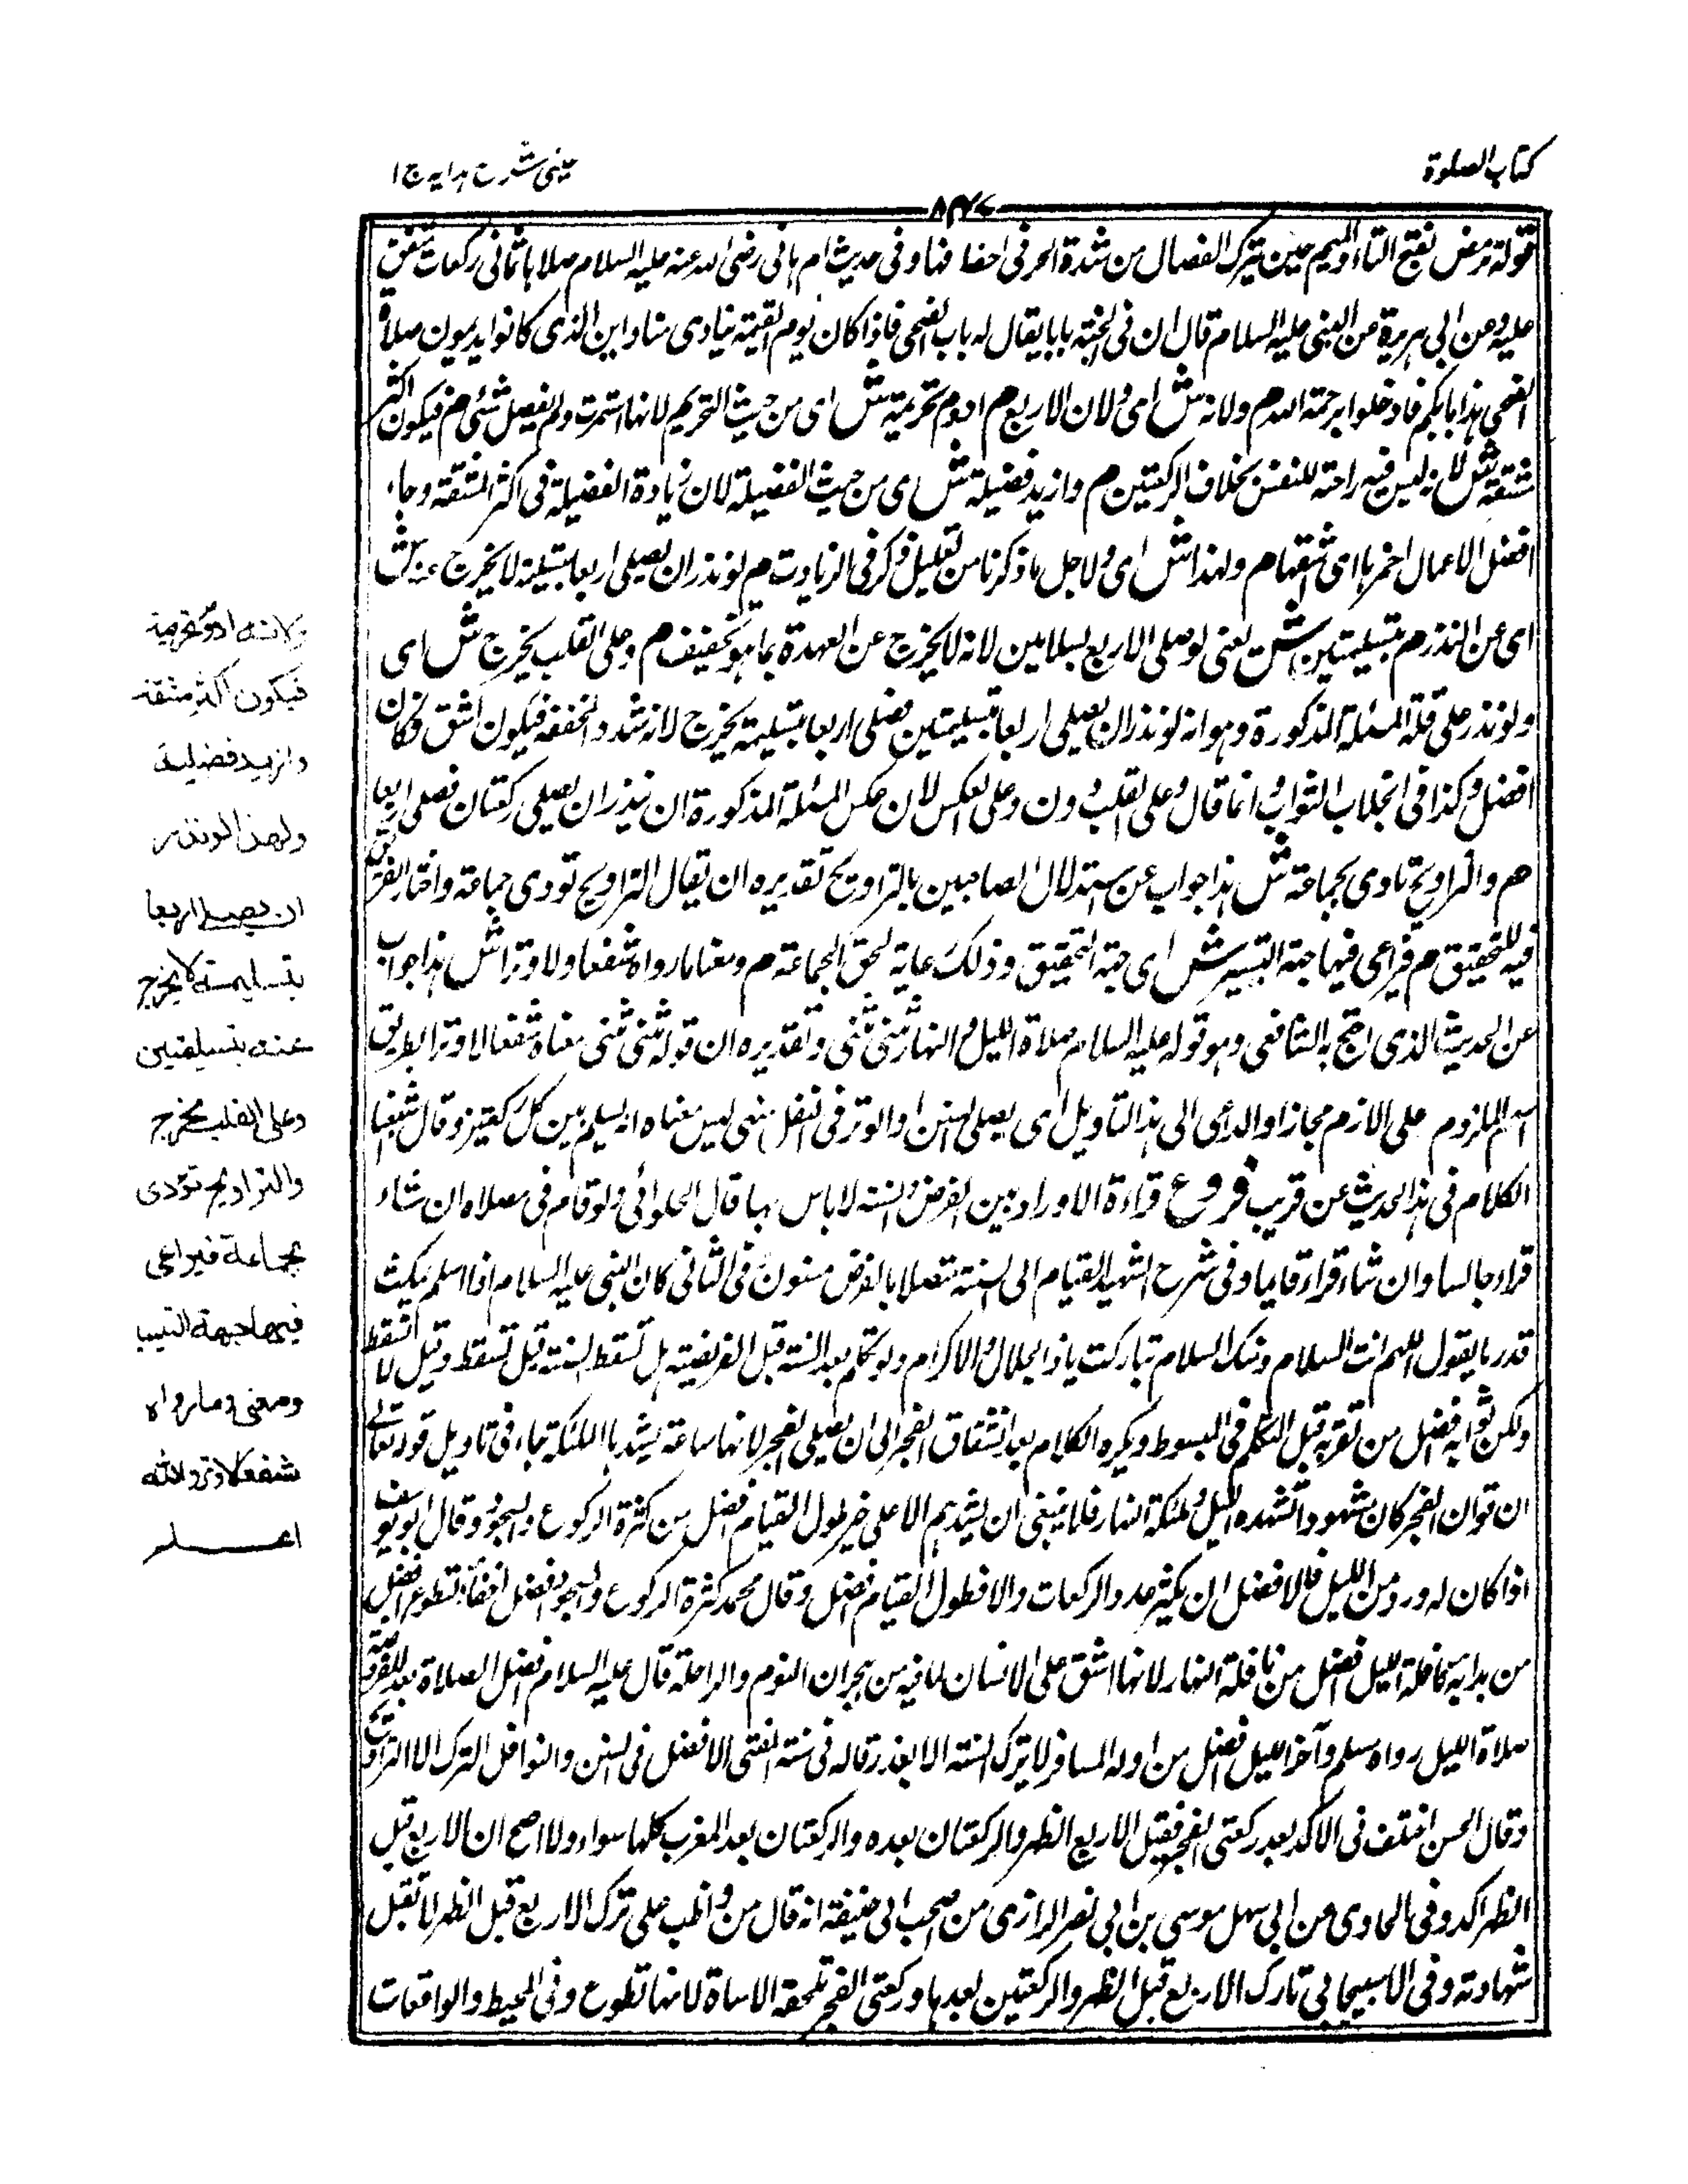 كتاب الصلوة
عينى شرح هدايه ج ١
٨٤٧
قوله ترمض بفتح التاء والميم حين تبرك الفصال من شدة الحر فى اخفافها وفى حديث ام هانى رضى الله عنه عليه السلام صلاها ثمانى ركعات متفق
عليه وعن ابى هريرة عن النبى عليه السلام قال ان فى الجنة بابا يقال له باب الضحى فاذا كان يوم القيمة ينادى مناد اين الذى كانوا يديمون صلاة
الضحى هذا بابكم فادخلوا برحمة الله م ولانه ش اى ولان الاربع م ادوم تحريمة ش اى من حيث التحريم لانها استمرت ولم يفصل شئ م فيكون اكثر
مشقة ش لانه ليس فيه راحة للنفس بخلاف الركعتين م وازيد فضيلة ش اى من حيث الفضيلة لان زيادة الفضيلة فى اكثر المشقة وجاء
افضل الاعمال احمزها اى اشقها م ولهذا ش اى ولاجل ما ذكرنا من تعليل ذكر فى الزيادت م لو نذر ان يصلى اربعا بتسليمة لا يخرج عنه ش
اى عن النذر م بتسليمتين ش يعنى لو صلى الاربع بسلامين لانه لا يخرج عن العهدة بما هو تخفيف م وعلى القلب يخرج ش اى
ولو نذر على قلة المسئلة المذكورة وهو انه لو نذر ان يصلى اربعا بتسليمتين فصلى اربعا بتسليمة يخرج لانه شدد والخففه فيكون اشق فكان
افضل وكذا فى انجلاب الثواب وانما قال وعلى القلب دون وعلى العكس لان عكس المسئلة المذكورة ان ينذر ان يصلى ركعتان فصلى اربعا
هم والتراويح تادى بجماعة ش هذا جواب عن استدلال الصاحبين بالتراويح تقديره ان يقال التراويح تودى جماعة واختار الفرق
فيه للتحقيق م فيراعى فيها جهة التيسير ش اى جهة التحقيق وذلك رعاية لحق الجماعة م ومعنا ما رواه شفعا ولا وترا ش هذا جواب
عن الحديث الذى احتج به الشافعى وهو قوله عليه السلام صلاة الليل والنهار مثنى مثنى وتقديره ان قوله مثنى مثنى معناه شفعا لا وترا بطريق
اسم الملزوم على الازم مجازا والداعى الى هذا التاويل اى يصلى السنن والوتر فى النفل منهى ليس معناه انه يسلم بين كل ركعتين وقال شيخنا
الكلام فى هذا الحديث عن قريب فروع قراءة الاوراد بين الفرض والسنة لا باس بها قال الحلوانى ولو قام فى مصلاه ان شاء
قراء جالسا وان شاء قراء قايما وفى شرح الشهيد القيام الى السنة متصلا بالفرض مسنون وفى الثانى كان النبى عليه السلام اذا سلم يمكث
قدر ما يقول اللهم انت السلام ومنك السلام تباركت يا ذا الجلال والاكرام ولو تكلم بعد السنة قبل الفريضة هل تسقط السنة قيل تسقط وقيل لا تسقط
ولكن ثوابه افضل من ثوابه قبل التكلم فى المبسوط ويكره الكلام بعد انشقاق الفجر الى ان يصلى الفجر لانها ساعة يشهدها الملئكة جاء فى تاويل قوله تعالى
ان قران الفجر كان مشهودا تشهده الليل وملئكة النهار فلا ينبغى ان يشهدهم الا على خير طول القيام افضل من كثرة الركوع والسجود وقال ابو يوسف
اذا كان له ورد من الليل فالافضل ان يكثر عدد الركعات والا فطول القيام افضل وقال محمد كثرة الركوع والسجود افضل اخفاء التطوع افضل
من بدايه نافلة الليل افضل من نافلة النهار لانها اشق على الانسان لما فيه من هجران النوم والراحة قال عليه السلام افضل الصلاة بعد الفريضة
صلاة الليل رواه مسلم وآخر الليل افضل من اوله المسافر لا يترك السنة الا بعذر قاله فى منية المفتى الافضل فى السنن والنوافل الترك الا التراويح
وقال الحسن اختلف فى الاكد بعد ركعتى الفجر فقيل الاربع الظهر والركعتان بعده والركعتان بعد المغرب كلها سواء ولا اصح ان الاربع قبل
الظهر اكد وفى الحاوى عن ابى سهل موسى بن ابى نصر الرازى من صحب ابى حنيفة انه قال من واظب على ترك الاربع قبل الظهر لا تقبل
شهادته وفى الاسبيجابى تارك الاربع قبل الظهر والركعتين بعدها وركعتى الفجر تلحقه الاساة لانها تطوع وفى المحيط والواقعات
ولانه ادوم تحريمة
فيكون اكثر مشقة
وازيد فضيلة
ولهذا لو نذر
ان يصلى اربعا
بتسليمة لا يخرج
عنه بتسليمتين
وعلى القلب يخرج
والتراويح تؤدى
بجماعة فيراعى
فيها جهة التيسير
ومعنى ما رواه
شفعا لا وترا والله
اعلم